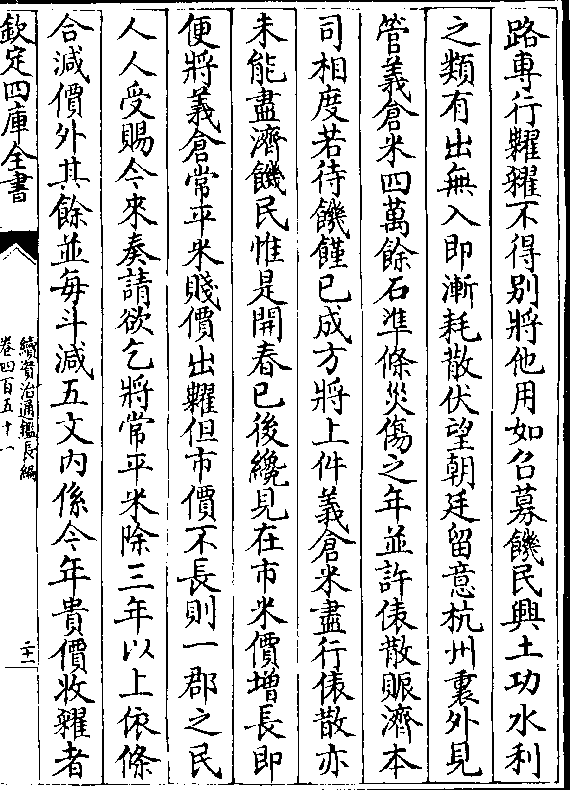 路專行糶糴不得別將他用如召募饑民興土功水利
之類有出無入即漸耗散伏望朝廷留意杭州裏外見
管義倉米四萬餘石準條災傷之年並許俵散賑濟本
司相度若待饑饉已成方將上件義倉米盡行俵散亦
未能盡濟饑民惟是開春已後纔見在市米價增長即
便將義倉常平米賤價出糶但市價不長則一郡之民
人人受賜今來奏請欲乞將常平米除三年以上依條
合減價外其餘並每斗減五文內係今年貴價收糴者
欽定四庫全書
續資治通鑑長編
卷四百五十一
二十一